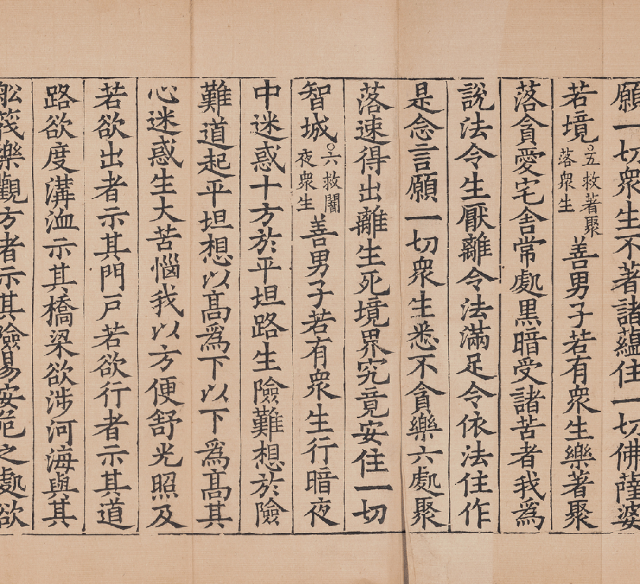 願一切衆生不著諸蘊住一切佛薩婆
若境○五救著聚落衆生善男子若有衆生樂著聚
落貪愛宅舍常處黑暗受諸苦者我爲
說法令生厭離令法滿足令依法住作
是念言願一切衆生悉不貪樂六處聚
落速得出離生死境界究竟安住一切
智城○六救闇夜衆生善男子若有衆生行暗夜
中迷惑十方於平坦路生險難想於險
難道起平坦想以髙爲下以下爲髙其
心迷惑生大苦惱我以方便舒光照及
若欲出者示其門戶若欲行者示其道
路欲度溝洫示其橋梁欲涉河海與其
舩筏樂觀方者示其險易安危之處欲